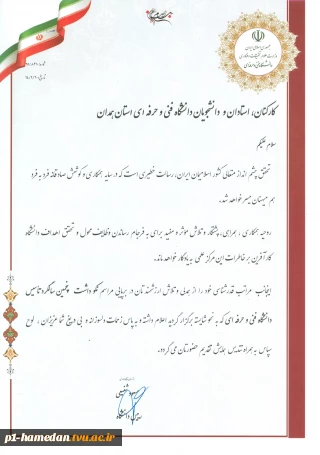 جمهوری اسلامی ایران
کارکنان، استادان و دانشجویان دانشگاه فنی و حرفه ای استان همدان
سلام علیکم
تحقق چشم انداز متعالی کشور اسلامیمان ایران، رسالت خطیری است که در سایه همکاری و کوشش صادقانه فرد به فرد
هم میهنان میسر خواهد شد.
روحیه همکاری، همراهی، پشتکار و تلاش موثر و مفید برای به فرجام رساندن وظایف محول و تحقق اهداف دانشگاه
کارآفرین بر خاطرات این مرکز علمی به یادگار خواهد ماند.
اینجانب مراتب قدرشناسی خود را از همدلی و تلاش ارزشمندتان در برپایی مراسم نکوداشت پنجمین سالگرد تاسیس
دانشگاه فنی و حرفه ای که به نحو شایسته برگزار گردید اعلام داشته و به پاس زحمات دلسوزانه و بی دریغ شما عزیزان، لوح
سپاس به همراه تندیس همایش تقدیم حضورتان می گردد.
p1-hamedan.tvu.ac.ir